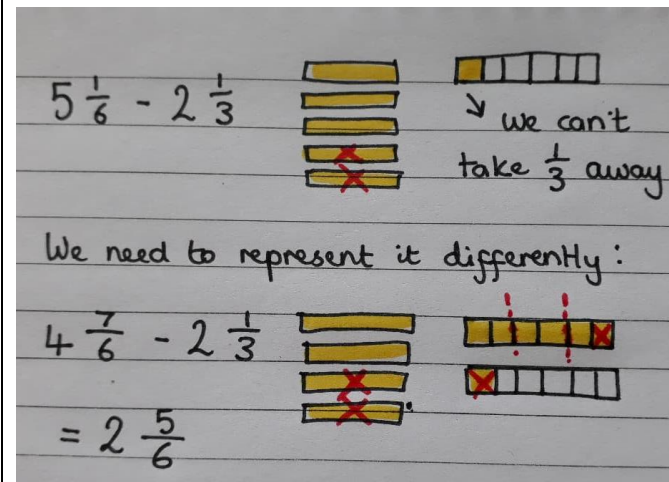 5 1/6 - 2 1/3
we can't
take 1/3 away
We need to represent it differently:
4 7/6 - 2 1/3
= 2 5/6